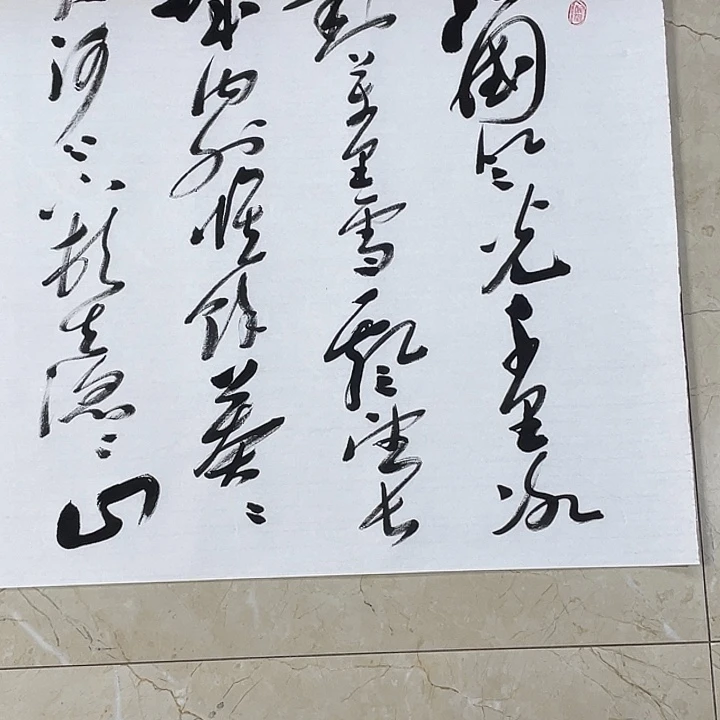 國風光千里冰
封萬里雪飄望長
城内外惟餘莽〻
河上下頓失滔〻山